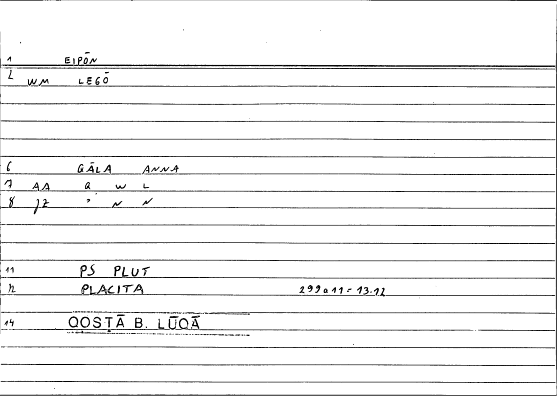 1 EIPŌN
2 WM LEGŌ
6 GĀLA ANNA
7 AA Q W L
8 JZ " N N
11 PS PLUT
12 PLACITA 299a11 = 13.12
14 QOSṬĀ B. LŪQĀ